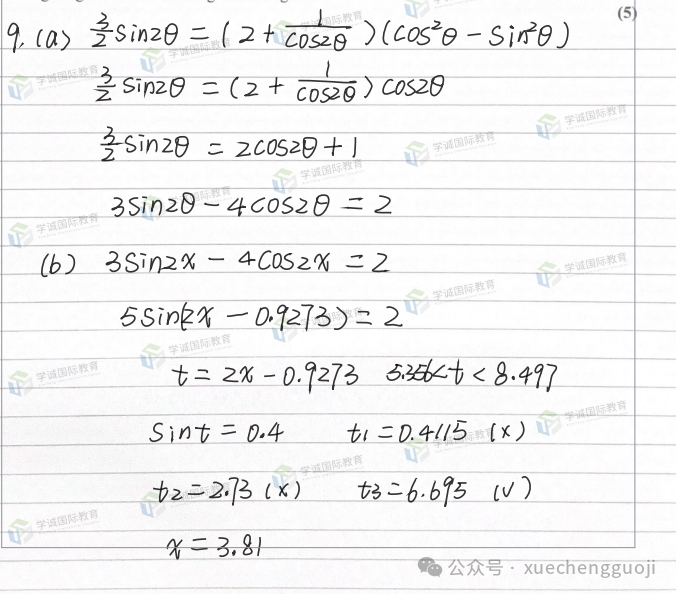 (5)
9. (a) 3/2 sin2θ = (2 + 1/cos2θ)(cos²θ - sin²θ)
3/2 sin2θ = (2 + 1/cos2θ) cos2θ
3/2 sin2θ = 2cos2θ + 1
3sin2θ - 4cos2θ = 2
(b) 3sin2x - 4cos2x = 2
5sin(2x - 0.9273) = 2
t = 2x - 0.9273 5.356 < t < 8.497
sint = 0.4 t1 = 0.4115 (x)
t2 = 2.73 (x) t3 = 6.695 (√)
x = 3.81
学诚国际教育
公众号 · xuechengguoji